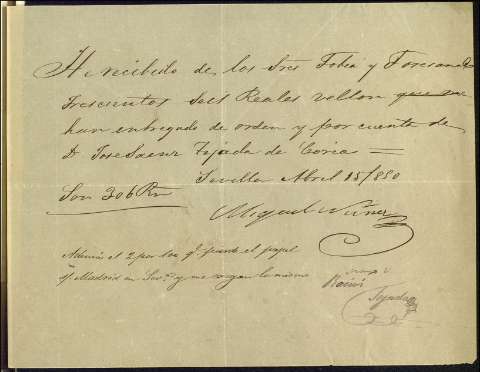 He recibido de los Sres Tobia y
Trescientos seis Reales vellon que me
han entregado de orden y por cuenta de
D Jose Saenz Tejada de Coria =
Sevilla Abril 15/850
Son 306 Rn
Miguel Nuñez
Además el 2 por % q.e pierde el papel
Madrid en y me la misma
Recibí
Tejada